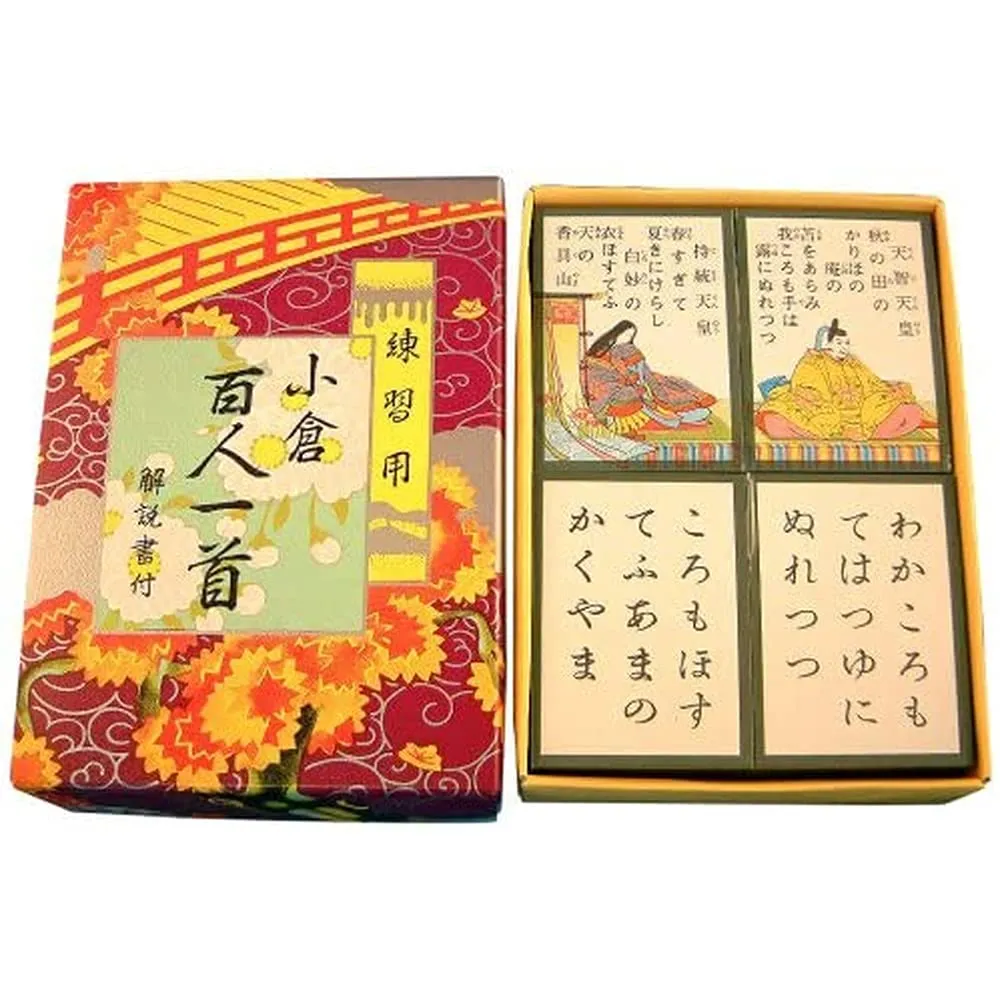 練習用
小倉
百人一首
解説書付
天智天皇
秋の田の
かりほの
庵の
苫をあらみ
我ころも手は
露にぬれつつ
持統天皇
春すぎて
夏きにけらし
白妙の
衣ほすてふ
天の
香具山
わかころも
てはつゆに
ぬれつつ
ころもほす
てふあまの
かくやま